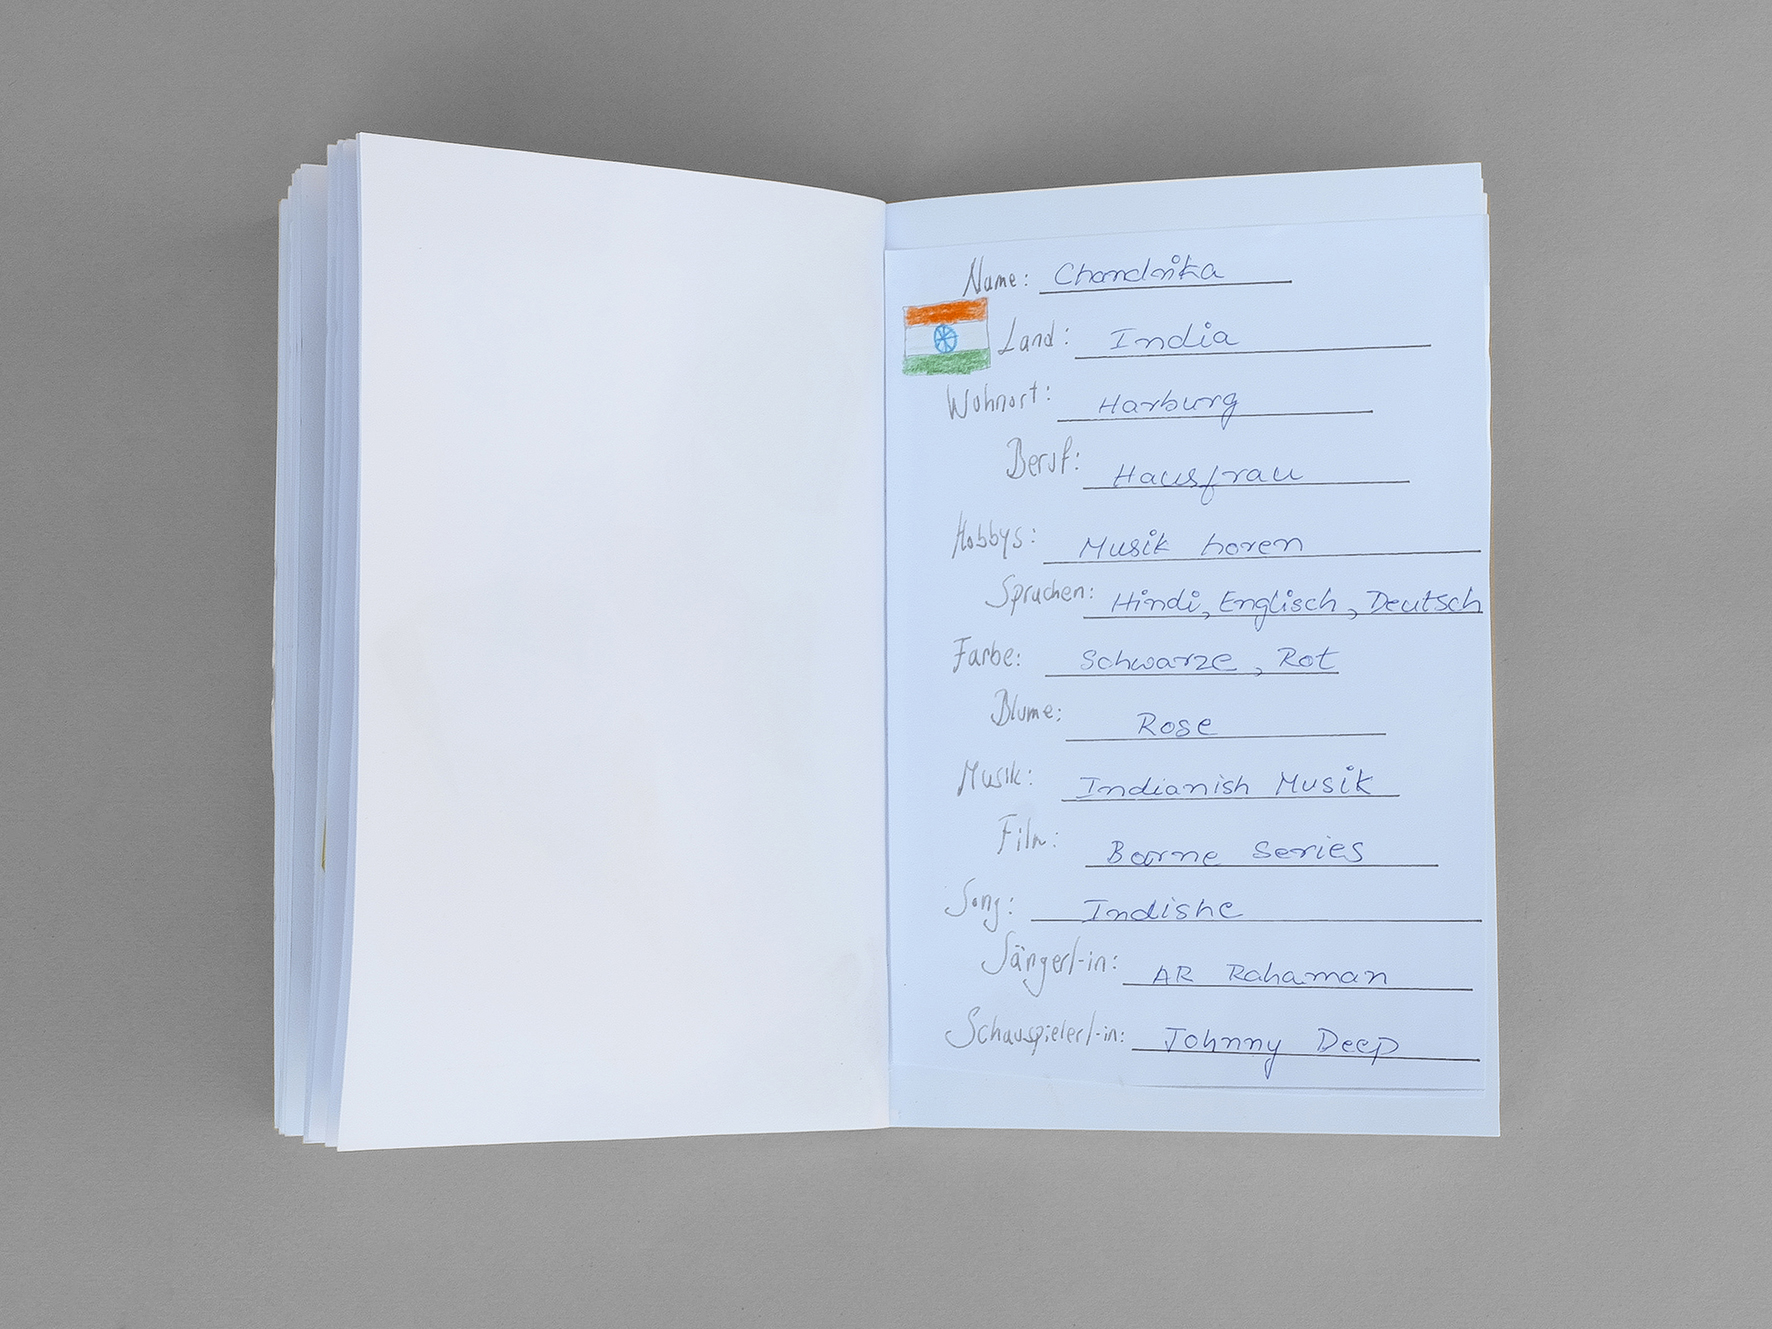 Name: Chandrika
Land: India
Wohnort: Harburg
Beruf: Hausfrau
Hobbys: Musik horen
Sprachen: Hindi, Englisch, Deutsch
Farbe: Schwarze, Rot
Blume: Rose
Musik: Indianish Musik
Film: Borne Series
Song: Indishe
Sänger/-in: AR Rahaman
Schauspieler/-in: Johnny Deep